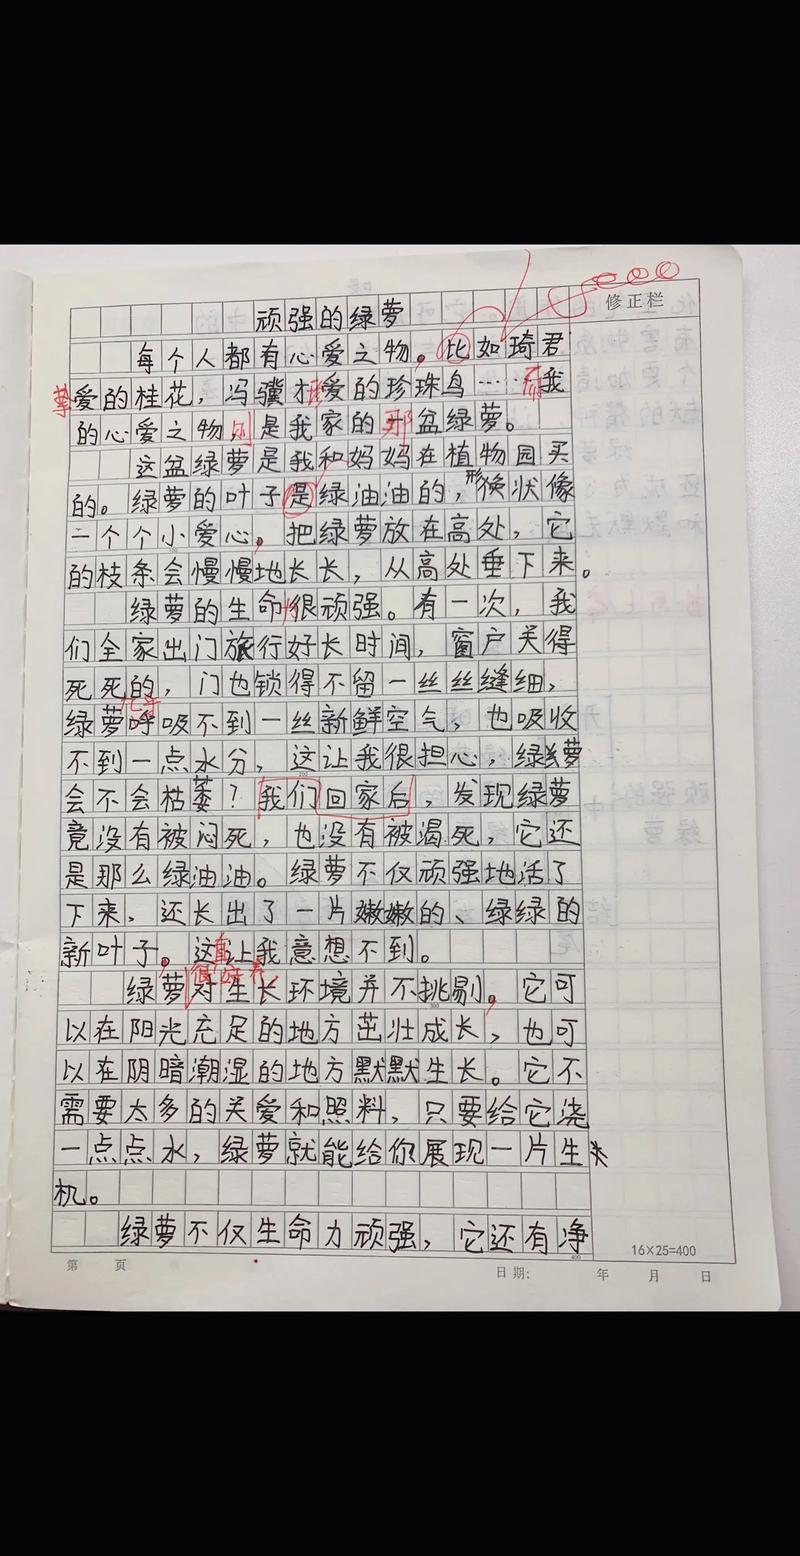 修正栏
顽强的绿萝
每个人都有心爱之物。比如琦君
挚爱的桂花，冯骥才爱的珍珠鸟……而我
的心爱之物则是我家的那盆绿萝。
这盆绿萝是我和妈妈在植物园买
的。绿萝的叶子是绿油油的，形状像
一个个小爱心。把绿萝放在高处，它
的枝条会慢慢地长长，从高处垂下来。
绿萝的生命很顽强。有一次，我
们全家出门旅行好长时间，窗户关得
死死的，门也锁得不留一丝丝缝细，
绿萝呼吸不到一丝新鲜空气，也吸收
不到一点水分，这让我很担心，绿萝
会不会枯萎？我们回家后，发现绿萝
竟没有被闷死，也没有被渴死，它还
是那么绿油油。绿萝不仅顽强地活了
下来，还长出了一片嫩嫩的、绿绿的
新叶子。这真让我意想不到。
很好养
绿萝对生长环境并不挑剔。它可
以在阳光充足的地方茁壮成长，也可
以在阴暗潮湿的地方默默生长。它不
需要太多的关爱和照料，只要给它浇
一点点水，绿萝就能给你展现一片生
机。
绿萝不仅生命力顽强，它还有净
16×25=400
第 页
日期： 年 月 日